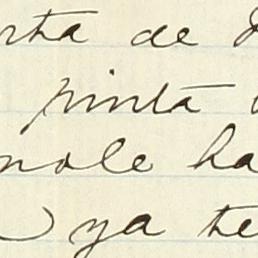 rta de
pinta
nole ha
ya te